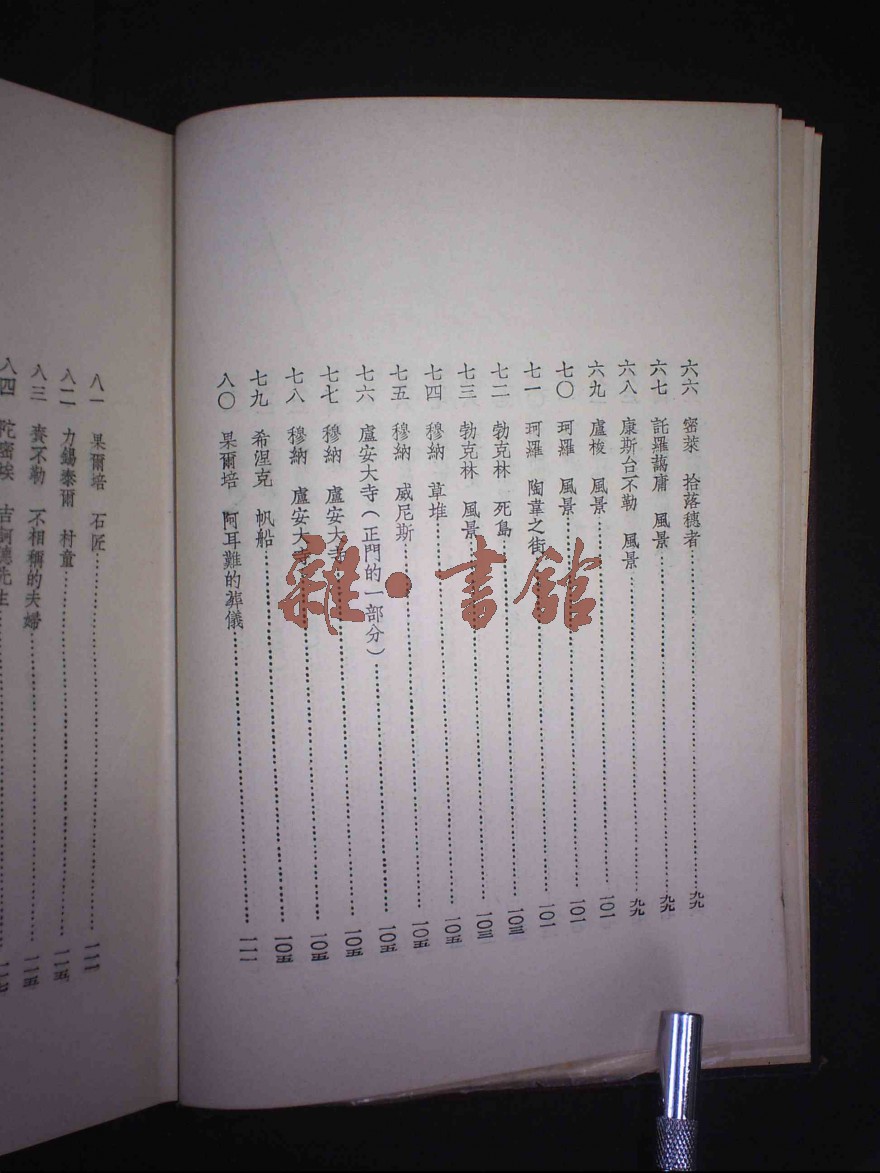 六六 密萊 拾落穗者 九九
六七 託羅藹庸 風景 九九
六八 康斯台不勒 風景 九九
六九 盧梭 風景 一〇一
七〇 珂羅 風景 一〇一
七一 珂羅 陶韋之街 一〇一
七二 勃克林 死島 一〇三
七三 勃克林 風景 一〇三
七四 穆納 草堆 一〇五
七五 穆納 威尼斯 一〇五
七六 盧安大寺(正門的一部分) 一〇五
七七 穆納 盧安大寺 一〇五
七八 穆納 盧安大寺 一〇五
七九 希涅克 帆船 一〇五
八〇 果爾培 阿耳難的葬儀 一一一
八一 果爾培 石匠 一一一
八二 力錫泰爾 村童 一一五
八三 賚不勒 不相稱的夫婦 一一五
八四 陀密埃 吉訶德先生 一一七
雜·書館